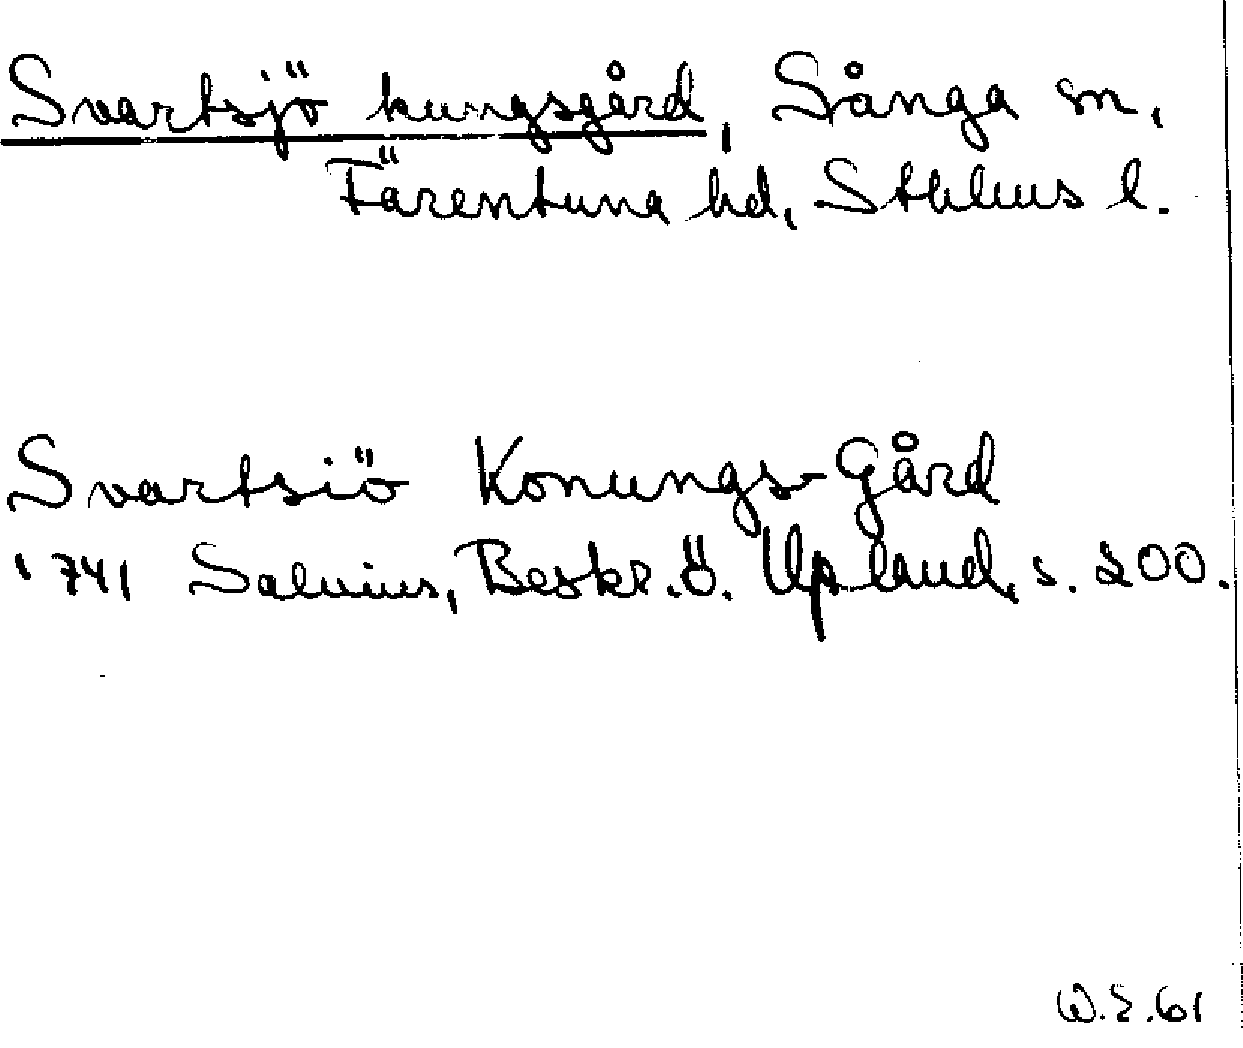 Svartsjö kungsgård, Sånga sn,
Färentuna hd, Sthlms l.
Svartsiö Konungs-Gård
1741 Salvius, Beskr. ö. Upland, s. 200.
W.S.61